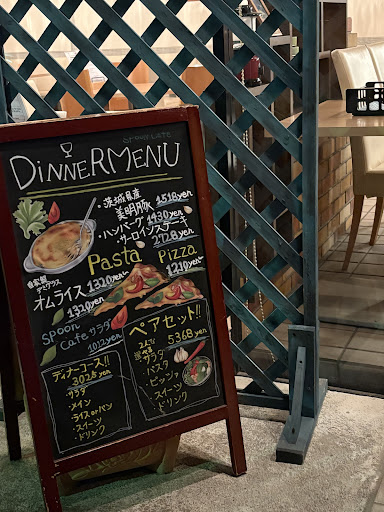 DiNNERMENU
・茨城県産
美明豚 1518yen
・ハンバーグ 1430yen
・サーロインステーキ
2728yen
Pasta
1320yen~
Pizza
1210yen~
自家製
デミグラス
オムライス
1320yen
SPOON
Cafeサラダ
1012yen
ペアセット!!
5368yen
サラダ
・パスタ
・ピッツァ
・スイーツ
・ドリンク
ディナーコース!!
3025yen
・サラダ
・メイン
・ライスorパン
・スイーツ
・ドリンク